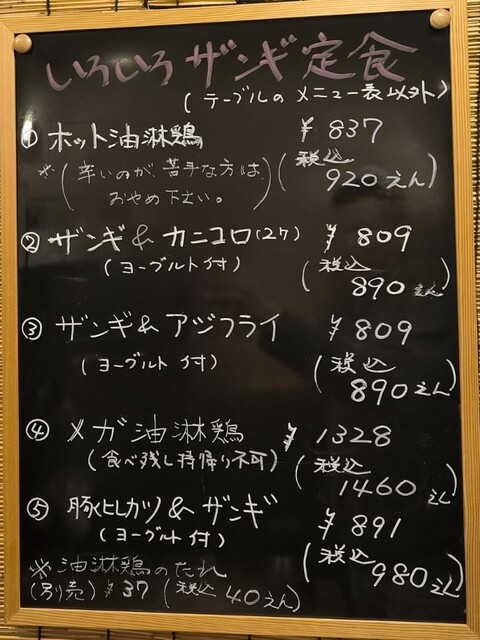 いろいろザンギ定食
(テーブルのメニュー表以外)
① ホット油淋鶏 ¥837
※(辛いのが苦手な方は (税込
おやめ下さい。) 920えん)
② ザンギ&カニコロ(2ケ) ¥809
(ヨーグルト付) (税込
890えん)
③ ザンギ&アジフライ ¥809
(ヨーグルト付) (税込
890えん)
④ メガ油淋鶏 ¥1328
(食べ残し持帰り不可) (税込
1460えん)
⑤ 豚ヒレカツ&ザンギ ¥891
(ヨーグルト付) (税込
980えん)
※油淋鶏のたれ
(別売) ¥37 (税込 40えん)